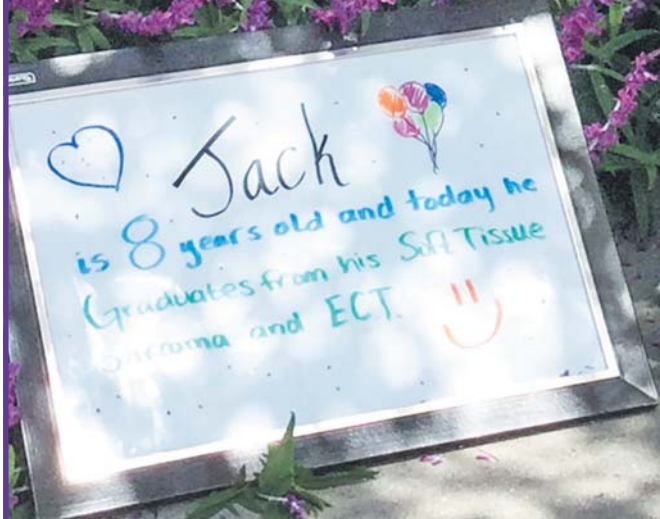 Jack
is 8 years old and today he
Graduates from his Soft Tissue
Sarcoma and ECT.